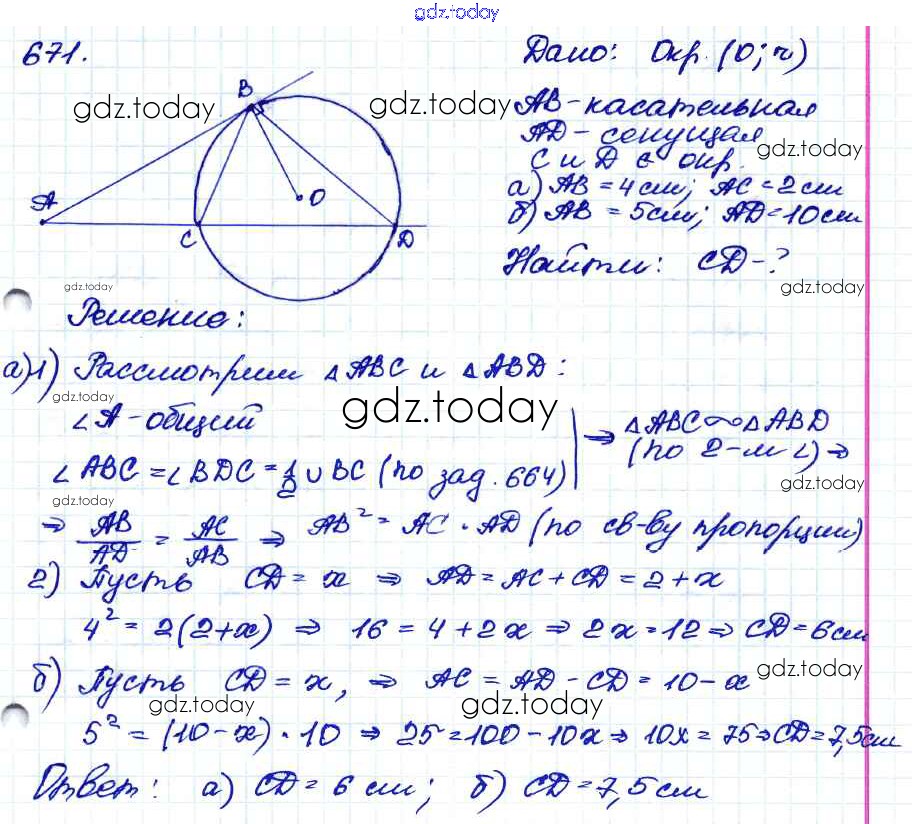 gdz.today
671.
Дано: Окр. (O; r)
B
gdz.today
gdz.today
AB - касательная
AD - секущая
gdz.today
C и D ∈ окр.
а) AB = 4 см; AC = 2 см
A
O
б) AB = 5 см; AD = 10 см
C
D
Найти: CD - ?
gdz.today
gdz.today
Решение:
а) 1) Рассмотрим △ABC и △ABD:
gdz.today
gdz.today
∠A - общий
∠ABC = ∠BDC = 1/2 ∪BC (по зад. 664)
⇒ △ABC ∾ △ABD
(по 2-м ∠) ⇒
gdz.today
gdz.today
⇒ AB/AD = AC/AB ⇒ AB² = AC · AD (по св-ву пропорции)
2) Пусть CD = x ⇒ AD = AC + CD = 2 + x
4² = 2(2+x) ⇒ 16 = 4 + 2x ⇒ 2x = 12 ⇒ CD = 6 см
gdz.today
б) Пусть CD = x, ⇒ AC = AD - CD = 10 - x
gdz.today
gdz.today
5² = (10 - x) · 10 ⇒ 25 = 100 - 10x ⇒ 10x = 75 ⇒ CD = 7,5 см
Ответ: а) CD = 6 см; б) CD = 7,5 см